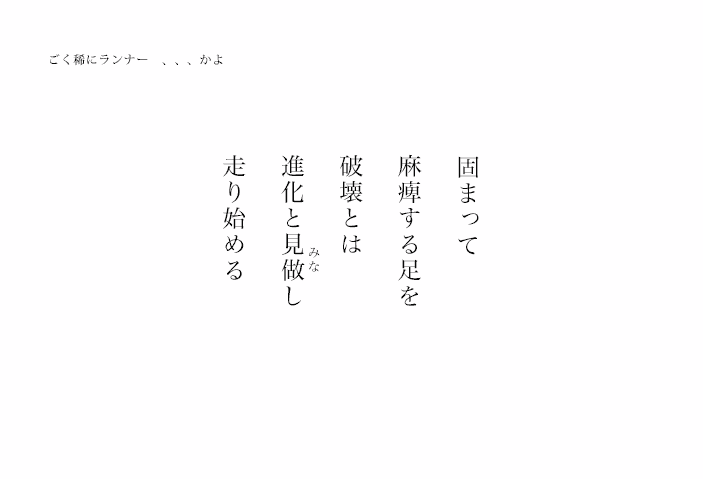 ごく稀にランナー　、、、かよ
固まって
麻痺する足を
破壊とは
進化と見做し
みな
走り始める